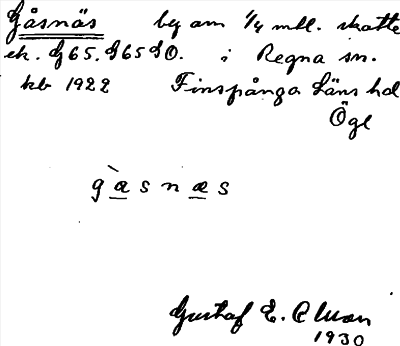 Gåsnäs by om 1/4 mtl. skatte
ek. G65. G65 SO. i Regna sn.
kb 1922 Finspånga Läns hd
Ögl
g æ s n æ s
Gustaf E.
1930